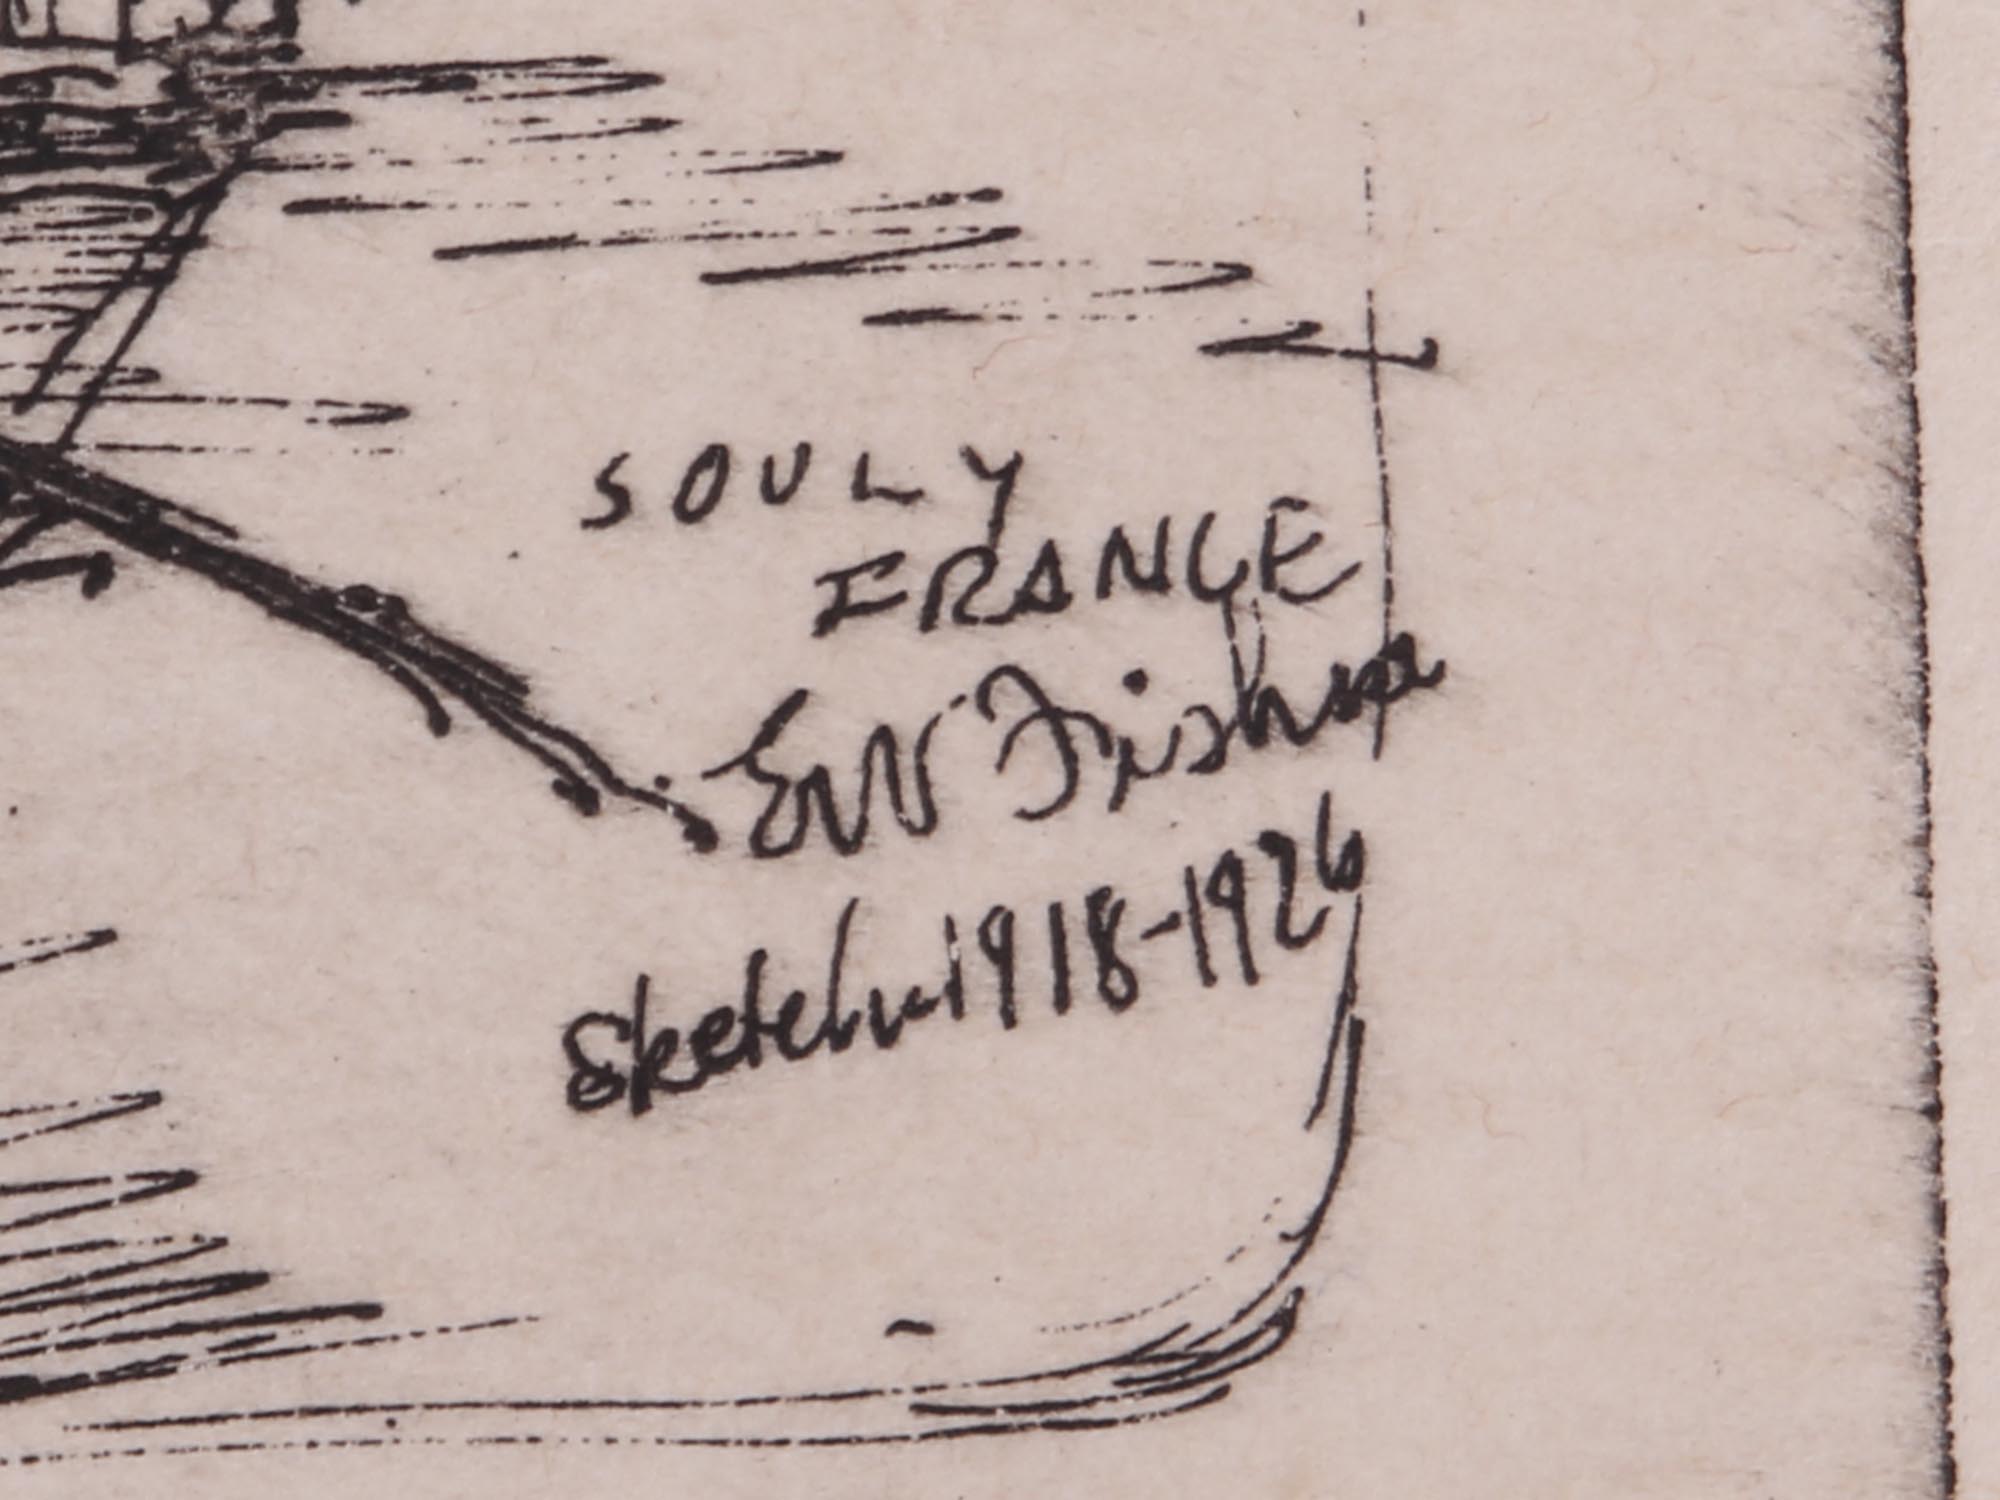 SOULY
FRANCE
EW Fisher
Sketch 1918-1926